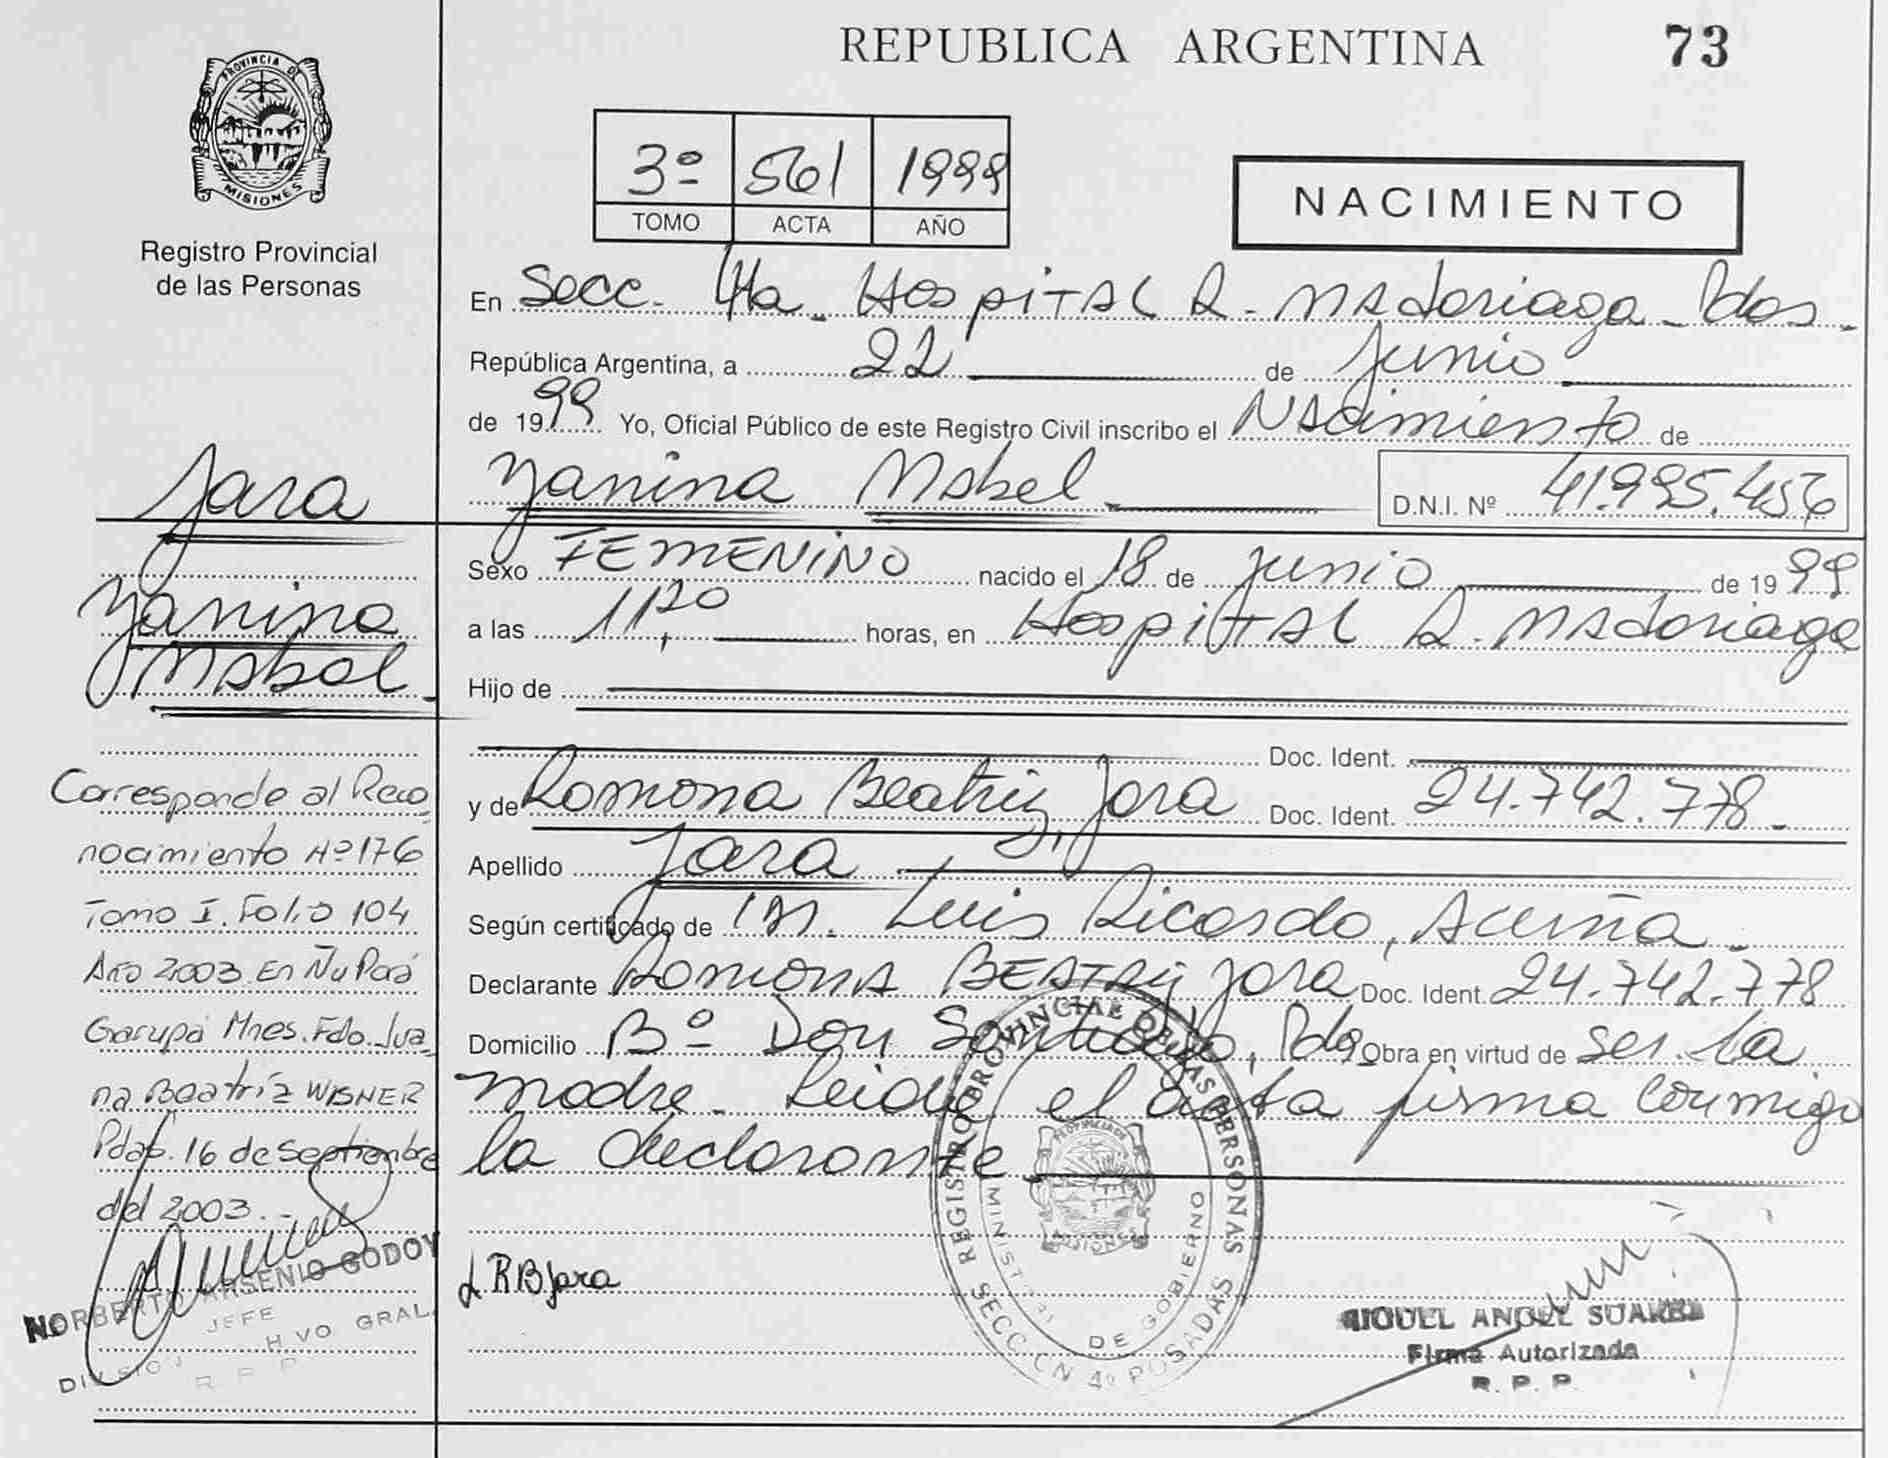 REPUBLICA ARGENTINA 73
PROVINCIA DE
MISIONES
Registro Provincial
de las Personas
3º 561 1999
TOMO ACTA AÑO
NACIMIENTO
En Secc. 4ta. Hospital R. Madariaga - Pdas.
República Argentina, a 22 de Junio
de 1999 Yo, Oficial Público de este Registro Civil inscribo el Nacimiento de
Yanina Mabel D.N.I. Nº 41.995.456
Sexo FEMENINO nacido el 18 de Junio de 1999
a las 11,20 horas, en Hospital R. Madariaga
Hijo de
Doc. Ident.
y de Ramona Beatriz Jara Doc. Ident. 24.742.778.
Apellido Jara
Según certificado de Dr. Luis Ricardo Acuña.
Declarante Ramona BEATRIZ Jara Doc. Ident. 24.742.778
Domicilio Bº Don Santiago, Pdas Obra en virtud de ser la
madre. Leida el acta firma conmigo
la declarante
Jara
Yanina
Mabel.
Corresponde al Reco
nocimiento Nº 176
Tomo I. Folio 104
Año 2003. En Ñu Porá
Garupá Mnes. Fdo. Jua
na Beatríz WISNER
Pdas. 16 de Septiembre
del 2003.-
NORBERTO ARSENIO GODOY
JEFE
DIVISION HIVO GRAL.
R P P
RBJara
REGISTRO PROVINCIAL DE LAS PERSONAS
MINISTERIO DE GOBIERNO
SECCION 4º POSADAS
PROVINCIA DE
MISIONES
MIGUEL ANGEL SUAREZ
Firma Autorizada
R. P. P.